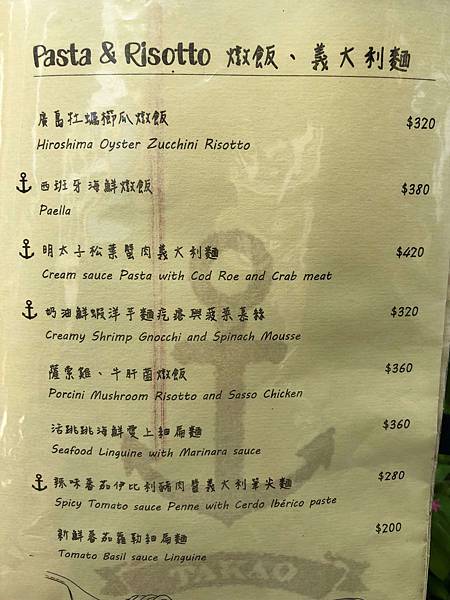 Pasta & Risotto 燉飯、義大利麵
廣島牡蠣櫛瓜燉飯 $320
Hiroshima Oyster Zucchini Risotto
西班牙海鮮燉飯 $380
Paella
明太子松葉蟹肉義大利麵 $420
Cream sauce Pasta with Cod Roe and Crab meat
奶油鮮蝦洋芋麵疙瘩與菠菜慕絲 $320
Creamy Shrimp Gnocchi and Spinach Mousse
薩索雞、牛肝菌燉飯 $360
Porcini Mushroom Risotto and Sasso Chicken
活跳跳海鮮愛上細扁麵 $360
Seafood Linguine with Marinara sauce
辣味蕃茄伊比利豬肉醬義大利筆尖麵 $280
Spicy Tomato sauce Penne with Cerdo Ibérico paste
新鮮蕃茄羅勒細扁麵 $200
Tomato Basil sauce Linguine